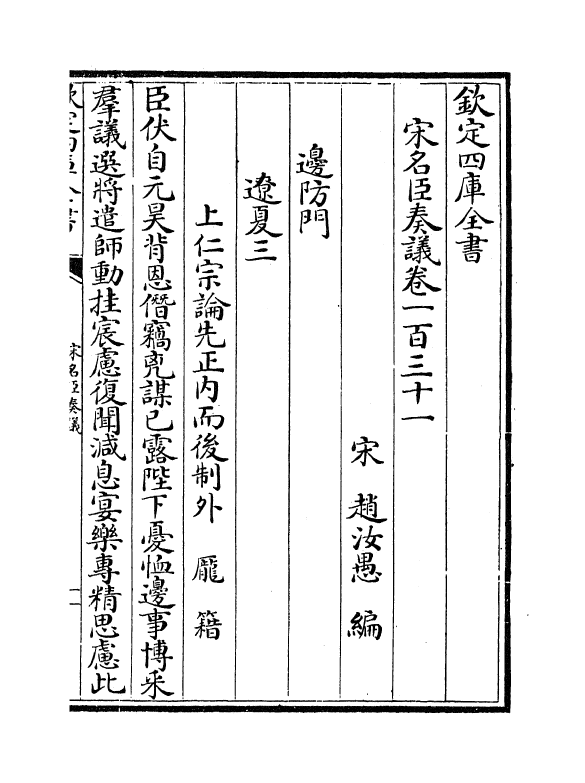 欽定四庫全書
宋名臣奏議卷一百三十一
宋 趙汝愚 編
邊防門
遼夏三
上仁宗論先正内而後制外 龎籍
臣伏自元昊背恩僭竊兇謀已露陛下憂恤邊事博采
羣議選將遣師動挂宸慮復聞減息宴樂專精思慮此
欽定四庫全書
宋名臣奏議